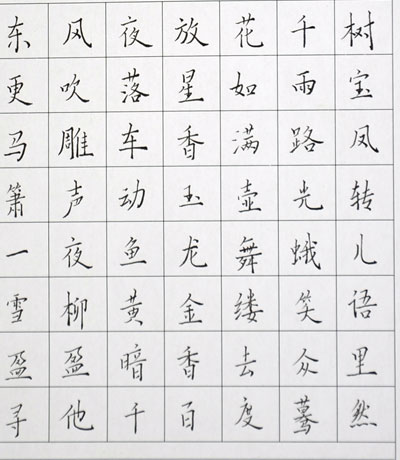 东风夜放花千树
更吹落星如雨宝
马雕车香满路凤
箫声动玉壶光转
一夜鱼龙舞蛾儿
雪柳黄金缕笑语
盈盈暗香去众里
寻他千百度蓦然